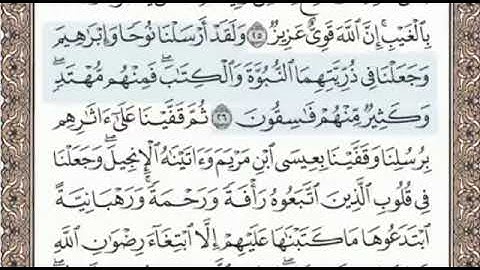 بِٱلْغَيْبِ ۚ إِنَّ ٱللَّهَ قَوِىٌّ عَزِيزٌ ٢٥ وَلَقَدْ أَرْسَلْنَا نُوحًا وَإِبْرَٰهِيمَ
وَجَعَلْنَا فِى ذُرِّيَّتِهِمَا ٱلنُّبُوَّةَ وَٱلْكِتَٰبَ ۖ فَمِنْهُم مُّهْتَدٍ ۖ
وَكَثِيرٌ مِّنْهُمْ فَٰسِقُونَ ٢٦ ثُمَّ قَفَّيْنَا عَلَىٰٓ ءَاثَٰرِهِم
بِرُسُلِنَا وَقَفَّيْنَا بِعِيسَى ٱبْنِ مَرْيَمَ وَءَاتَيْنَٰهُ ٱلْإِنجِيلَ ۖ وَجَعَلْنَا
فِى قُلُوبِ ٱلَّذِينَ ٱتَّبَعُوهُ رَأْفَةً وَرَحْمَةً وَرَهْبَانِيَّةً
ٱبْتَدَعُوهَا مَا كَتَبْنَٰهَا عَلَيْهِمْ إِلَّا ٱبْتِغَآءَ رِضْوَٰنِ ٱللَّهِ